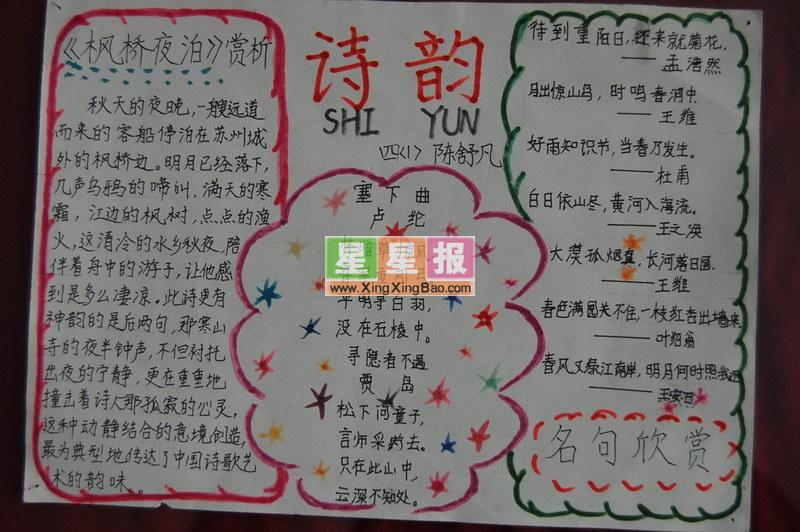 《枫桥夜泊》赏析
秋天的夜晚，一艘远道
而来的客船停泊在苏州城
外的枫桥边。明月已经落下，
几声乌鸦的啼叫，满天的寒
霜，江边的枫树，点点的渔
火，这清冷的水乡秋夜，陪
伴着舟中的游子，让他感
到是多么凄凉。此诗更有
神韵的是后两句，那寒山
寺的夜半钟声，不但衬托
出夜的宁静，更在重重地
撞击着诗人那孤寂的心灵，
这种动静结合的意境创造，
最为典型地传达了中国诗歌艺
术的韵味。
诗韵
SHI YUN
四(1) 陈舒凡
塞下曲
卢纶
星星报
www.XingXingBao.com
平明寻白羽，
没在石棱中。
寻隐者不遇
贾岛
松下问童子，
言师采药去。
只在此山中，
云深不知处。
待到重阳日，还来就菊花。
——孟浩然
月出惊山鸟，时鸣春涧中。
——王维
好雨知识节，当春乃发生。
——杜甫
白日依山尽，黄河入海流。
——王之涣
大漠孤烟直，长河落日圆。
——王维
春色满园关不住，一枝红杏出墙来
——叶绍翁
春风又绿江南岸，明月何时照我还
——王安石
名句欣赏